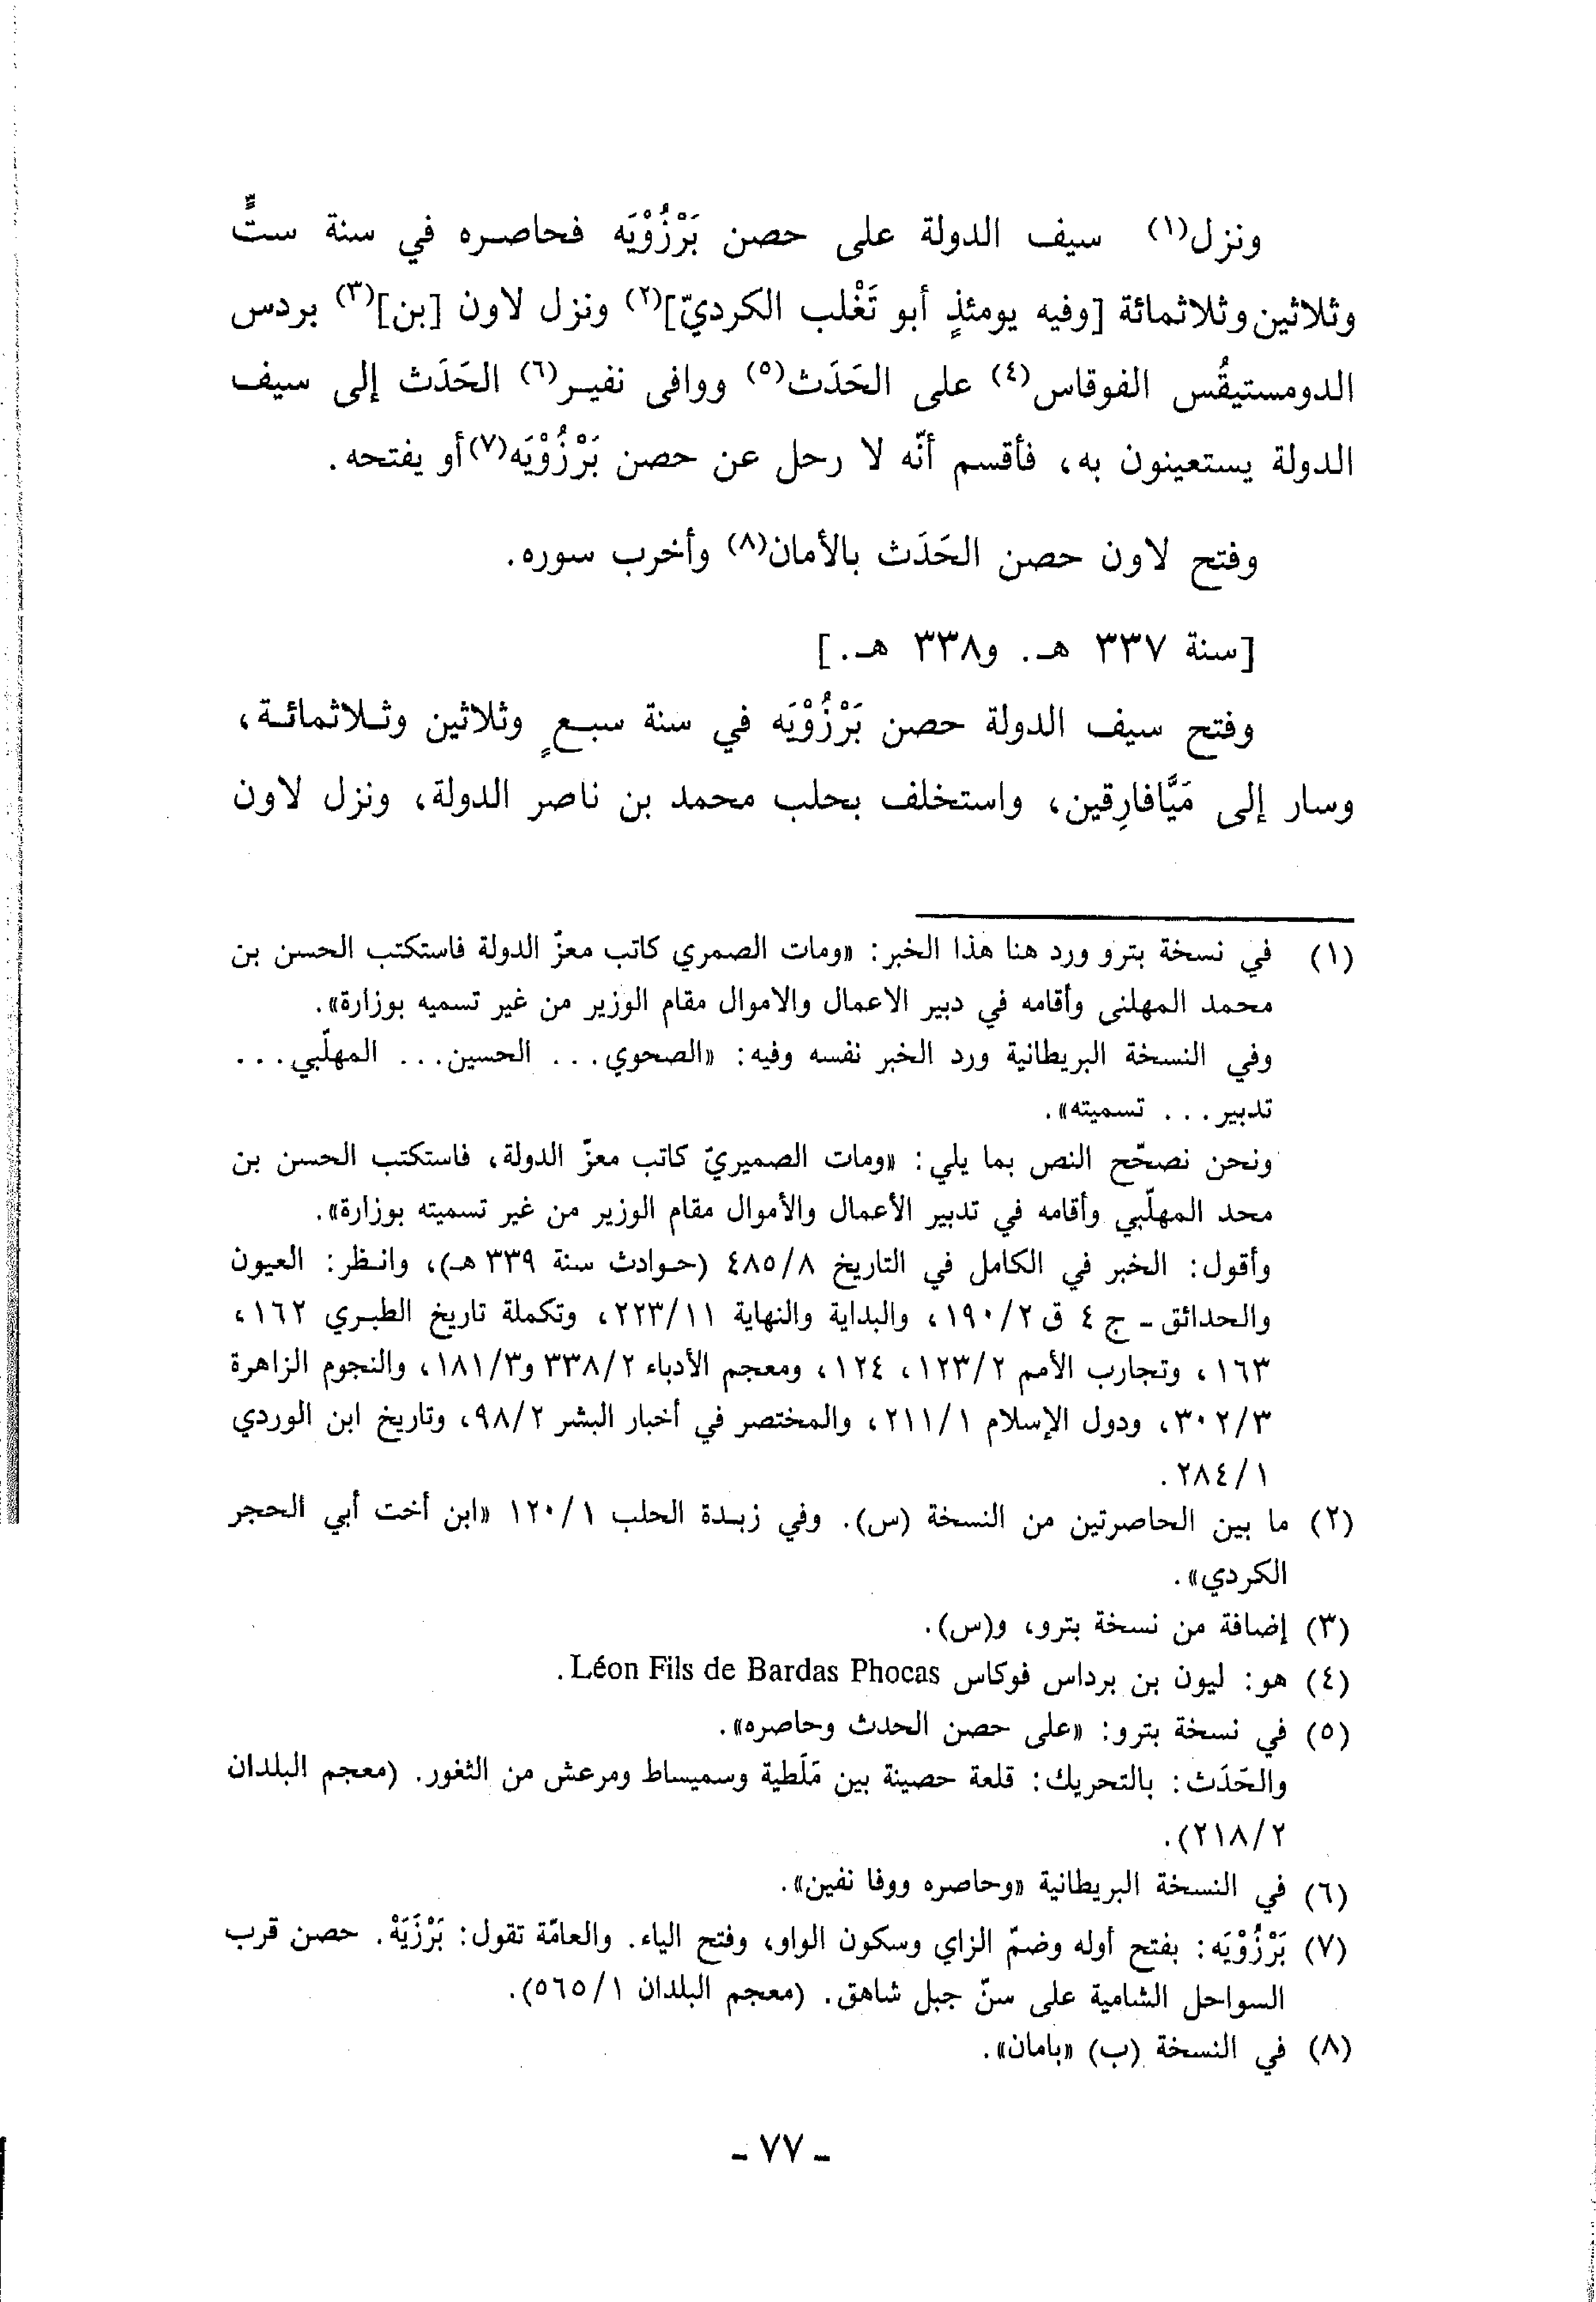 ونزل(١) سيف الدولة على حصن بَرْزُوْيَه فحاصره في سنة ستٍّ
وثلاثين وثلاثمائة [وفيه يومئذٍ أبو تَغْلب الكرديّ](٢) ونزل لاون [بن](٣) بردس
الدومستيقُس الفوقاس(٤) على الحَدَث(٥) ووافى نفير(٦) الحَدَث إلى سيف
الدولة يستعينون به، فأقسم أنّه لا رحل عن حصن بَرْزُوْيَه(٧) أو يفتحه.
وفتح لاون حصن الحَدَث بالأمان(٨) وأخرب سوره.
[سنة ٣٣٧ هـ. و٣٣٨ هـ.]
وفتح سيف الدولة حصن بَرْزُوْيَه في سنة سبعٍ وثلاثين وثلاثمائة،
وسار إلى مَيَّافارِقين، واستخلف بحلب محمد بن ناصر الدولة، ونزل لاون
(١) في نسخة بترو ورد هنا هذا الخبر: «ومات الصمري كاتب معزّ الدولة فاستكتب الحسن بن
محمد المهلنى وأقامه في دبير الاعمال والاموال مقام الوزير من غير تسميه بوزارة».
وفي النسخة البريطانية ورد الخبر نفسه وفيه: «الصحوي... الحسين... المهلّبي...
تدبير... تسميته».
ونحن نصحّح النص بما يلي: «ومات الصميريّ كاتب معزّ الدولة، فاستكتب الحسن بن
محد المهلّبي وأقامه في تدبير الأعمال والأموال مقام الوزير من غير تسميته بوزارة».
وأقول: الخبر في الكامل في التاريخ ٤٨٥/٨ (حوادث سنة ٣٣٩ هـ)، وانظر: العيون
والحدائق - ج ٤ ق ١٩٠/٢، والبداية والنهاية ٢٢٣/١١، وتكملة تاريخ الطبري ١٦٢،
١٦٣، وتجارب الأمم ١٢٣/٢، ١٢٤، ومعجم الأدباء ٣٣٨/٢ و١٨١/٣، والنجوم الزاهرة
٣٠٢/٣، ودول الإسلام ٢١١/١، والمختصر في أخبار البشر ٩٨/٢، وتاريخ ابن الوردي
٢٨٤/١.
(٢) ما بين الحاصرتين من النسخة (س). وفي زبدة الحلب ١٢٠/١ «ابن أخت أبي الحجر
الكردي».
(٣) إضافة من نسخة بترو، و(س).
(٤) هو: ليون بن برداس فوكاس Léon Fils de Bardas Phocas.
(٥) في نسخة بترو: «على حصن الحدث وحاصره».
والحَدَث: بالتحريك: قلعة حصينة بين مَلَطية وسميساط ومرعش من الثغور. (معجم البلدان
٢١٨/٢).
(٦) في النسخة البريطانية «وحاصره ووفا نفين».
(٧) بَرْزُوْيَه: بفتح أوله وضمّ الزاي وسكون الواو، وفتح الياء. والعامّة تقول: بَرْزَيَهْ. حصن قرب
السواحل الشامية على سنّ جبل شاهق. (معجم البلدان ٥٦٥/١).
(٨) في النسخة (ب) «بامان».
- ٧٧ -